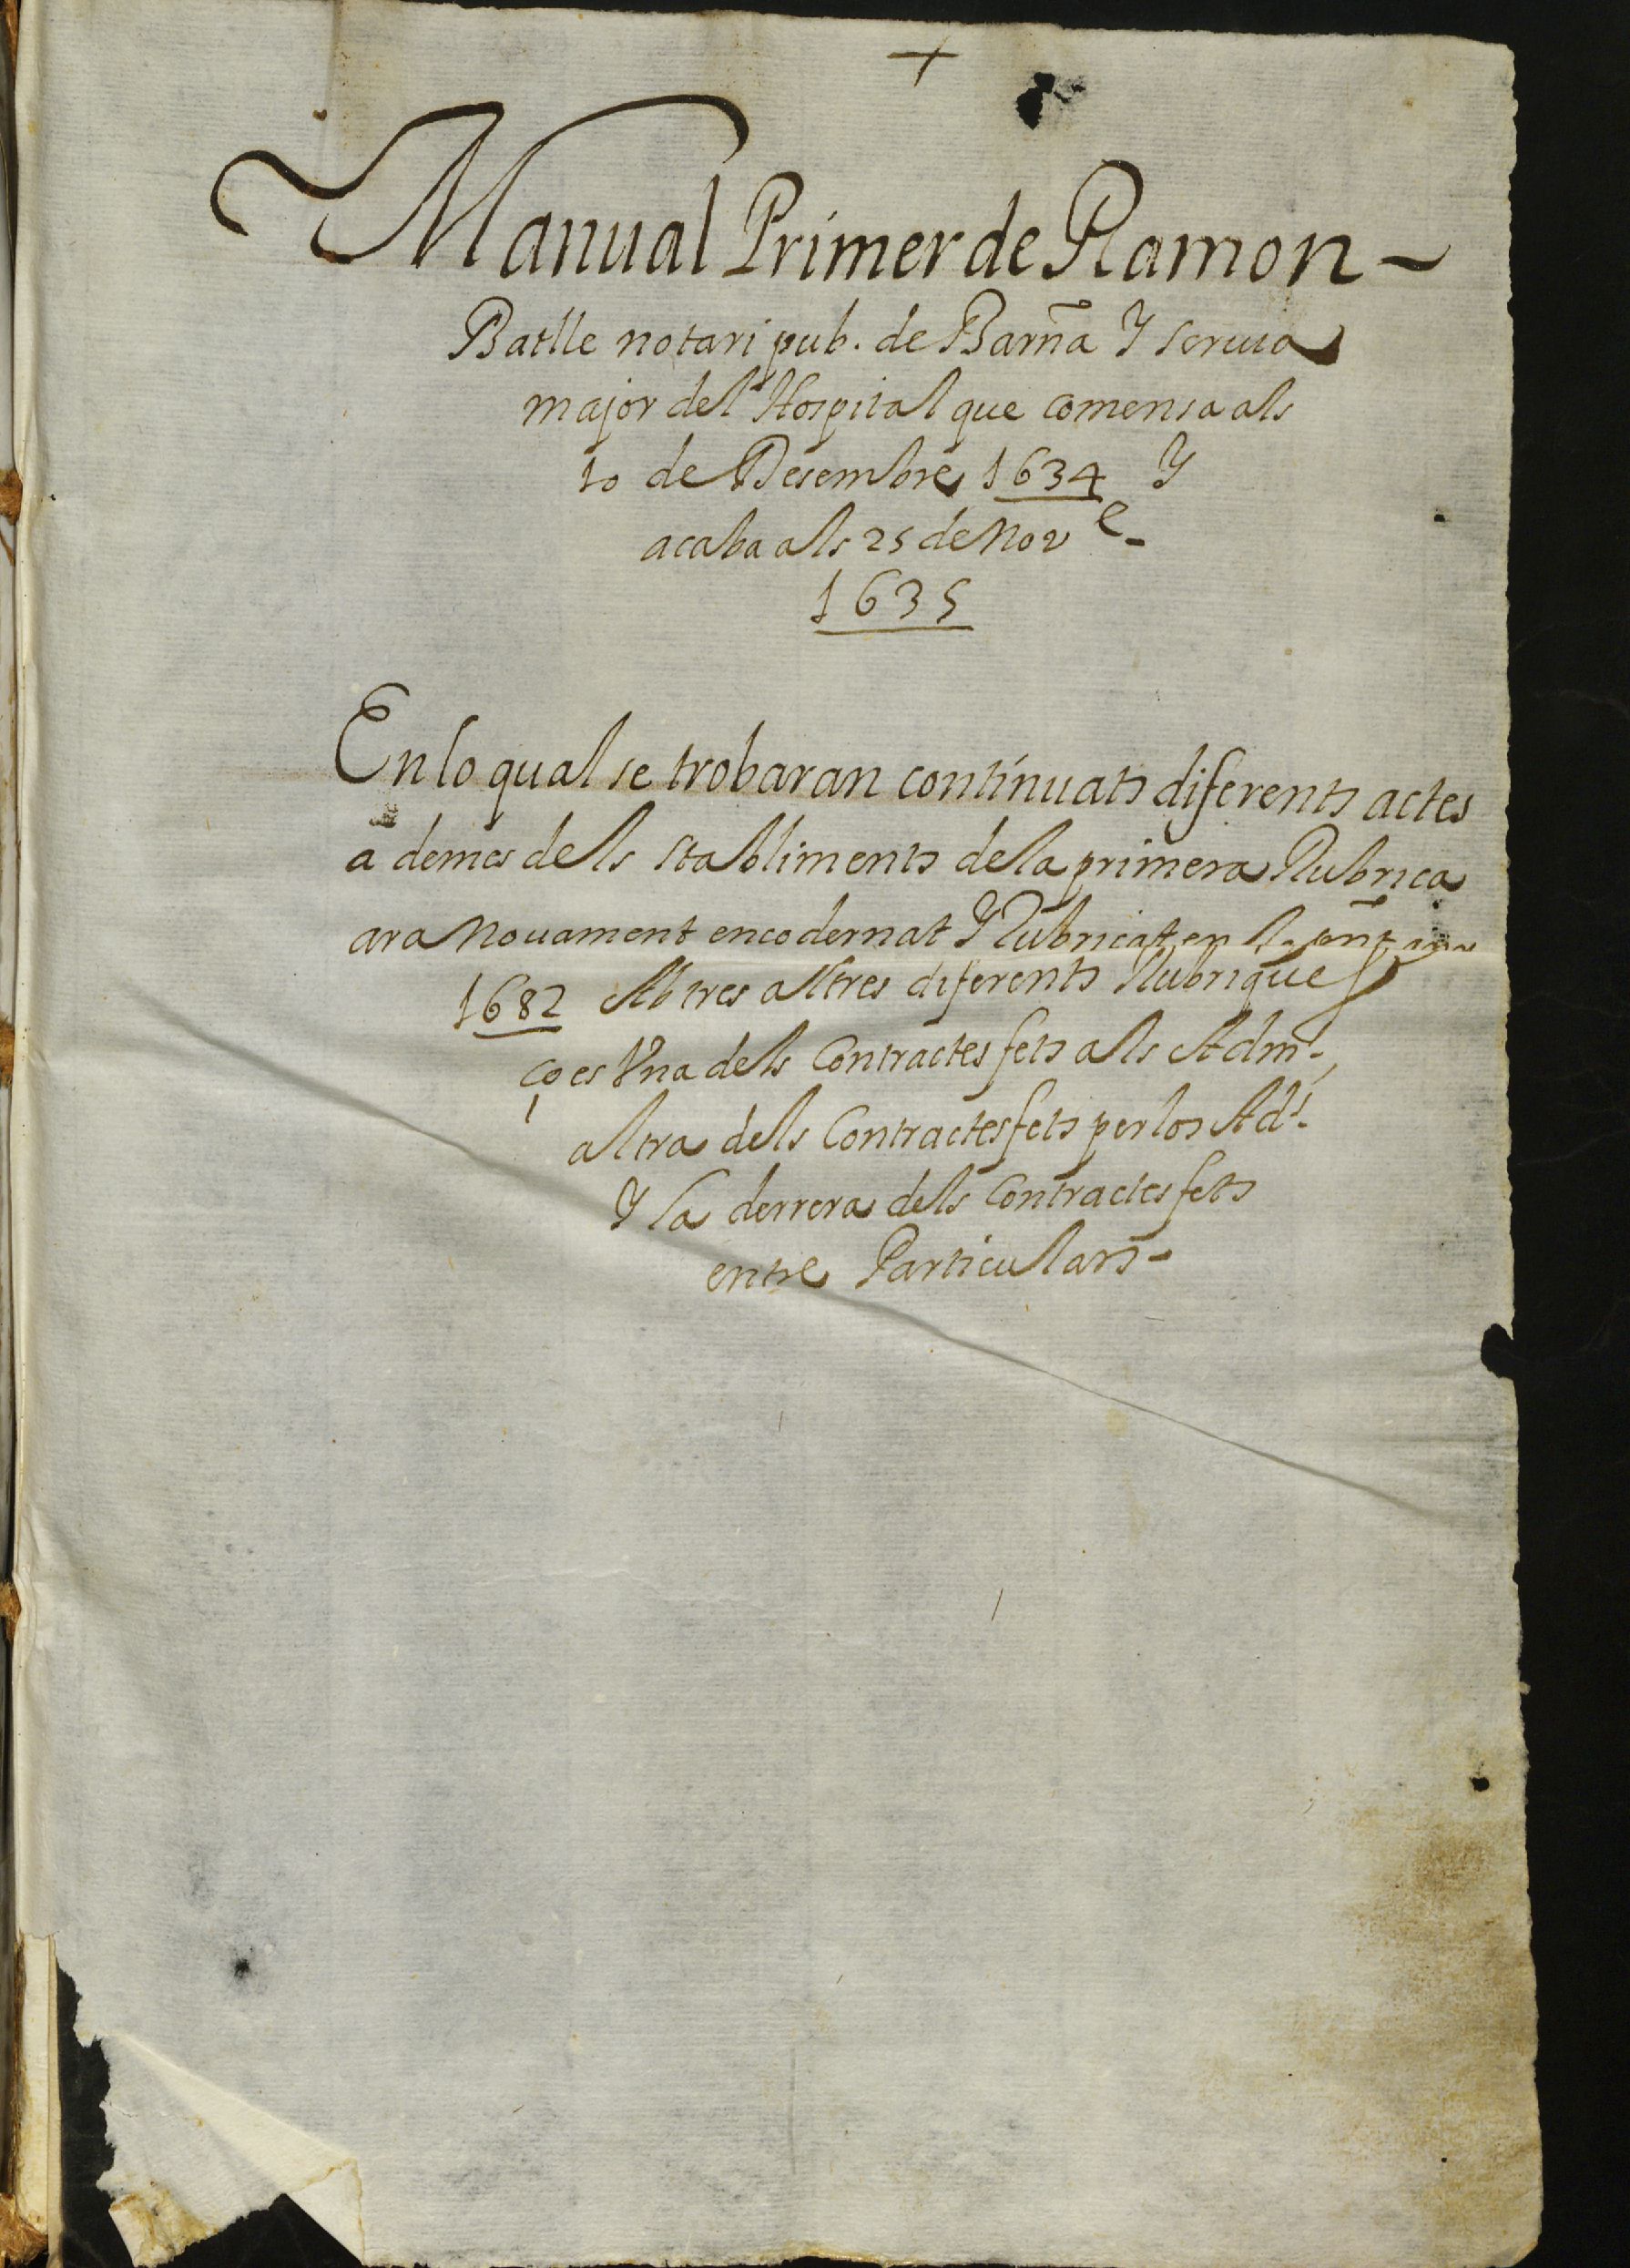 +
Manual Primer de Ramon -
Batlle notari pub. de Barña Y scriua
major del Hospital que comensa als
10 de Desembre 1634 Y
acaba als 25 de Nov e -
1635
En lo qual se trobaran continuats diferents actes
a demes dels stabliments de la primera Rubrica
ara Nouament encodernat Y Rubricat en lo pnt any
1682 Ab tres altres diferents Rubriques
ço es Vna dels Contractes fets als Adm.
altra dels Contractes fets per los Ads.
Y la derrera dels Contractes fets
entre Particulars -